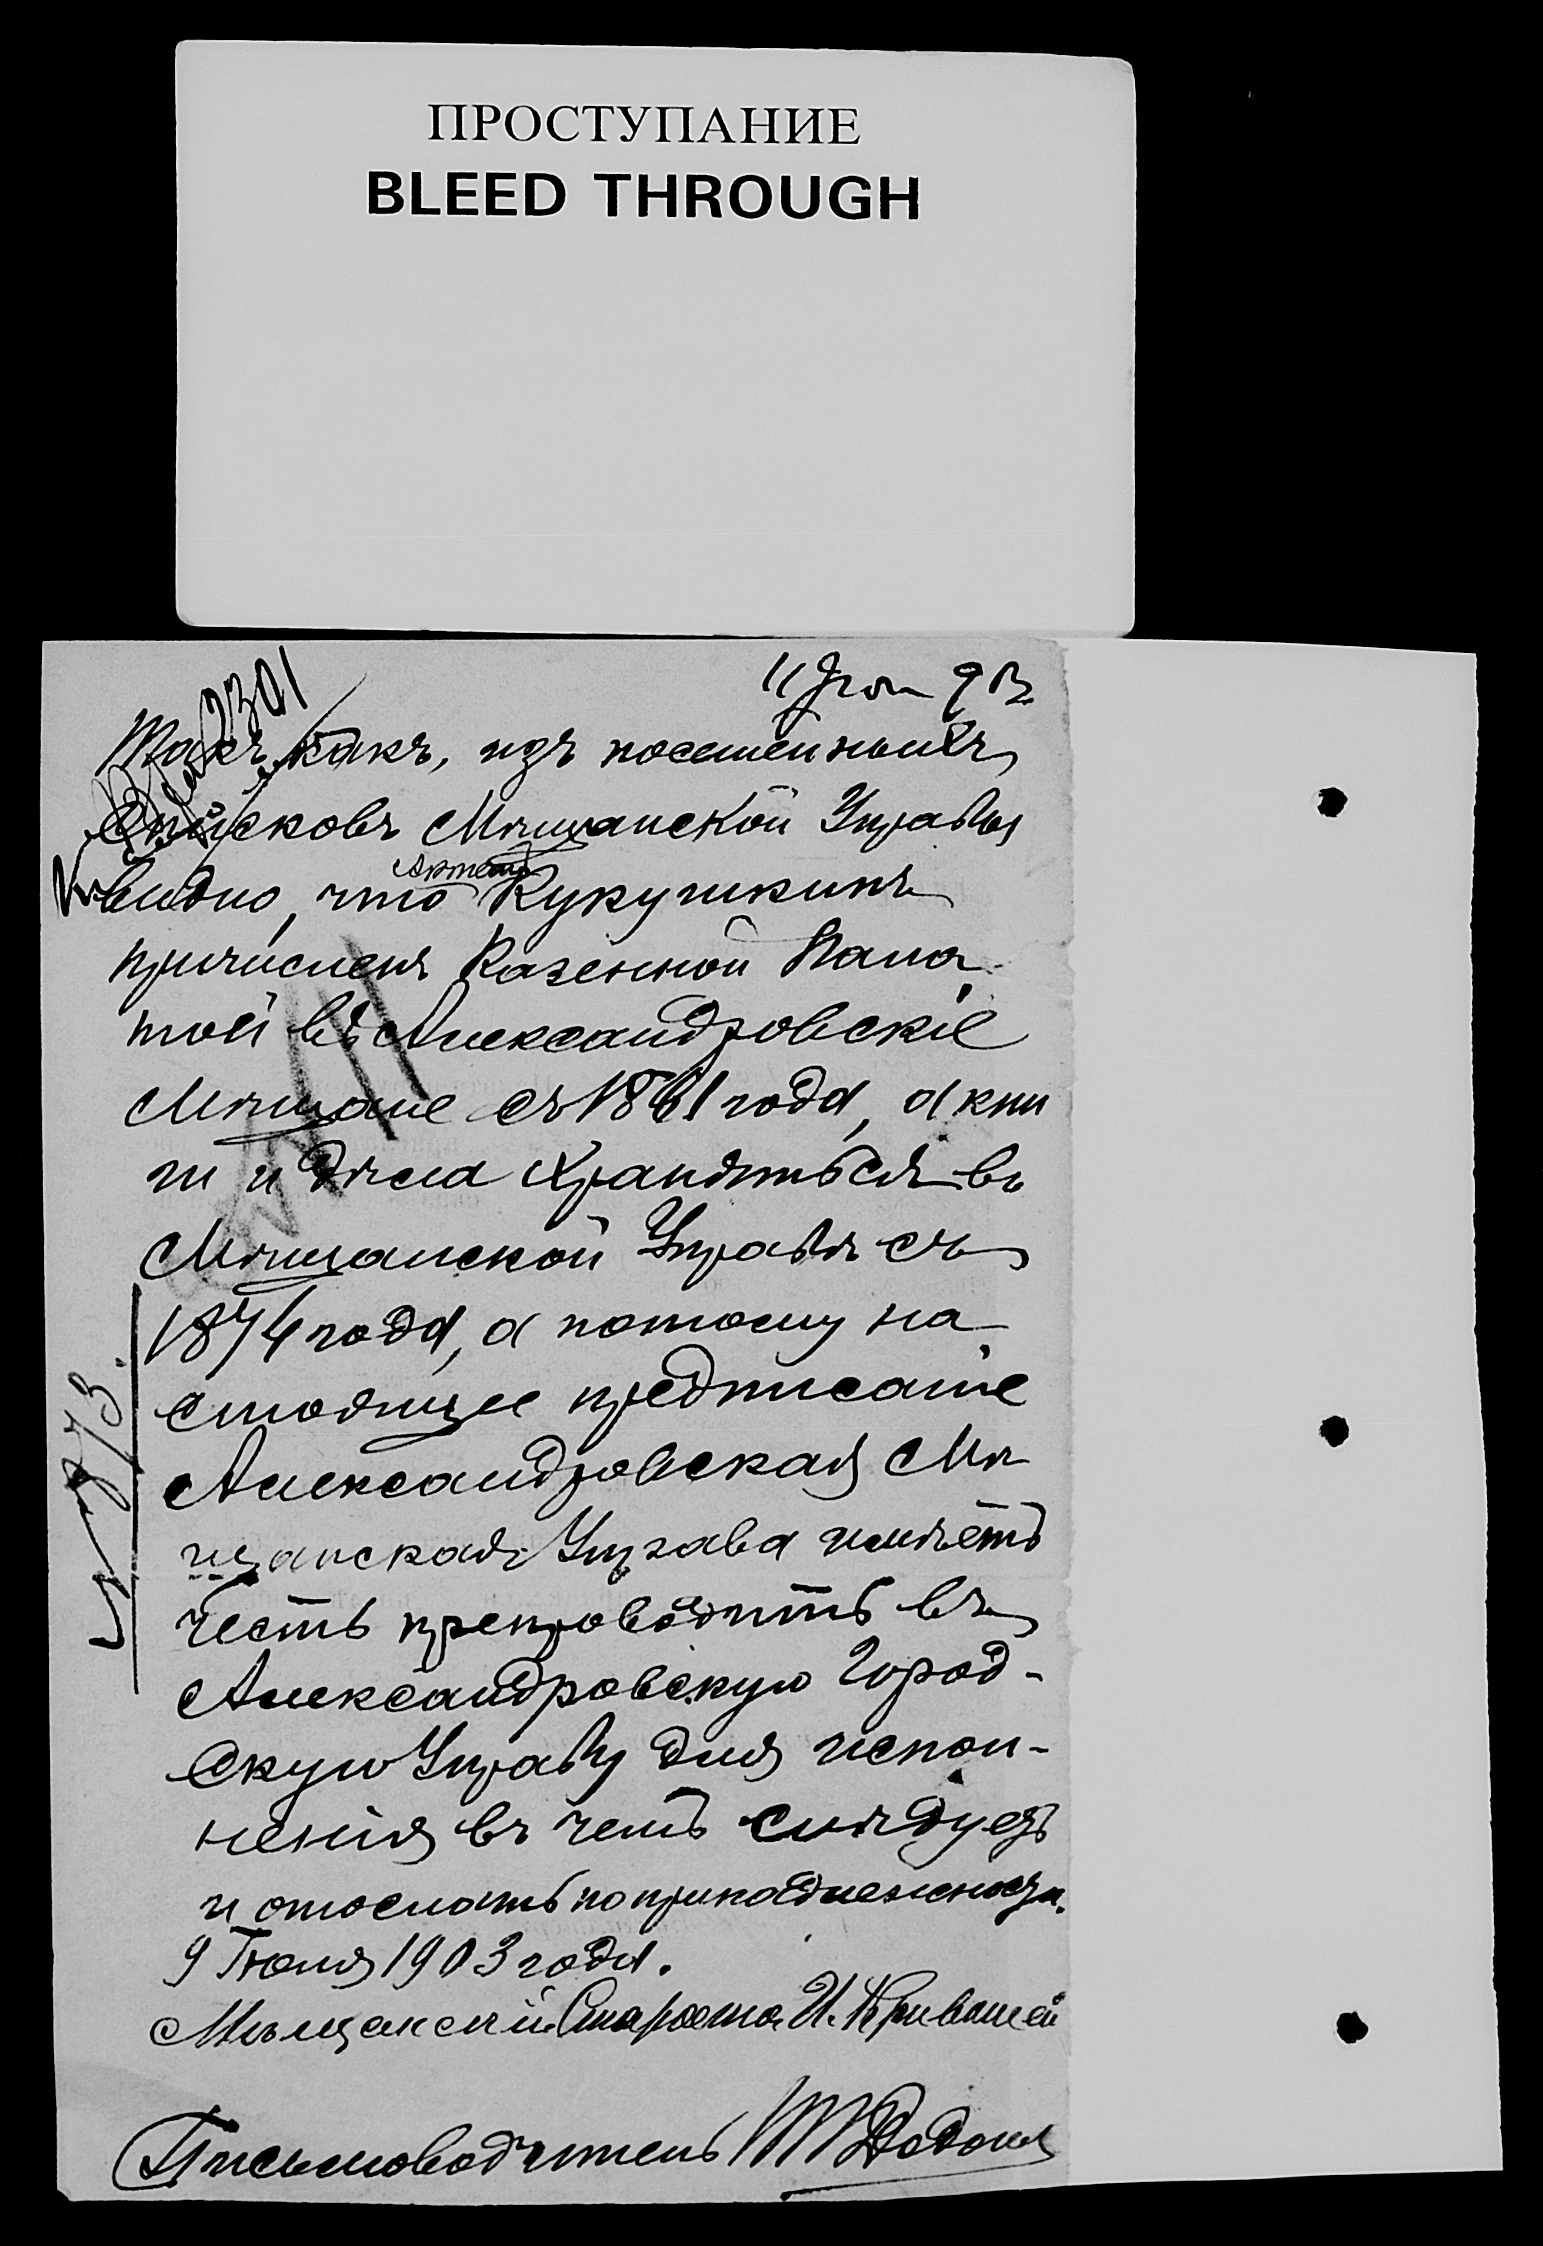 ПРОСТУПАНИЕ
BLEED THROUGH
2301
11 903
Такъ какъ, изъ посемейныхъ
списковъ Мѣщанской Управы
видно, что Кукушкинъ
причисленъ Казенной Пала
той въ Александровскіе
Мѣщане съ 1861 года, а кни
ги и дѣла храняться въ
Мѣщанской Управѣ съ
1874 года, а потому на
стоящее предписаніе
Александровская Мѣ
щанская Управа имѣетъ
честь препроводить въ
Александровскую Город-
скую Управу для испол-
ненія въ чемъ слѣдуетъ
и отослать по принадлежности.
9 Іюля 1903 года.
Мѣщанскій Староста И.
Письмоводитель
873